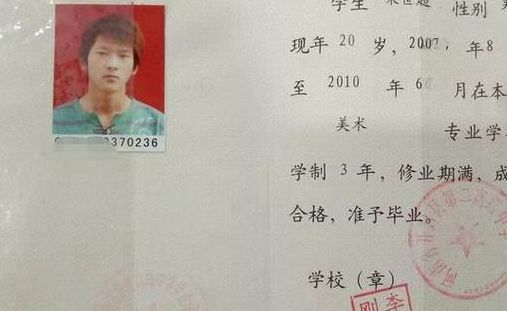 学生 性别
现年 20 岁，2007 年 8
至 2010 年 6 月在本
美术 专业学
学制 3 年，修业期满，成
合格，准予毕业。
学校（章）
370236
李
刚